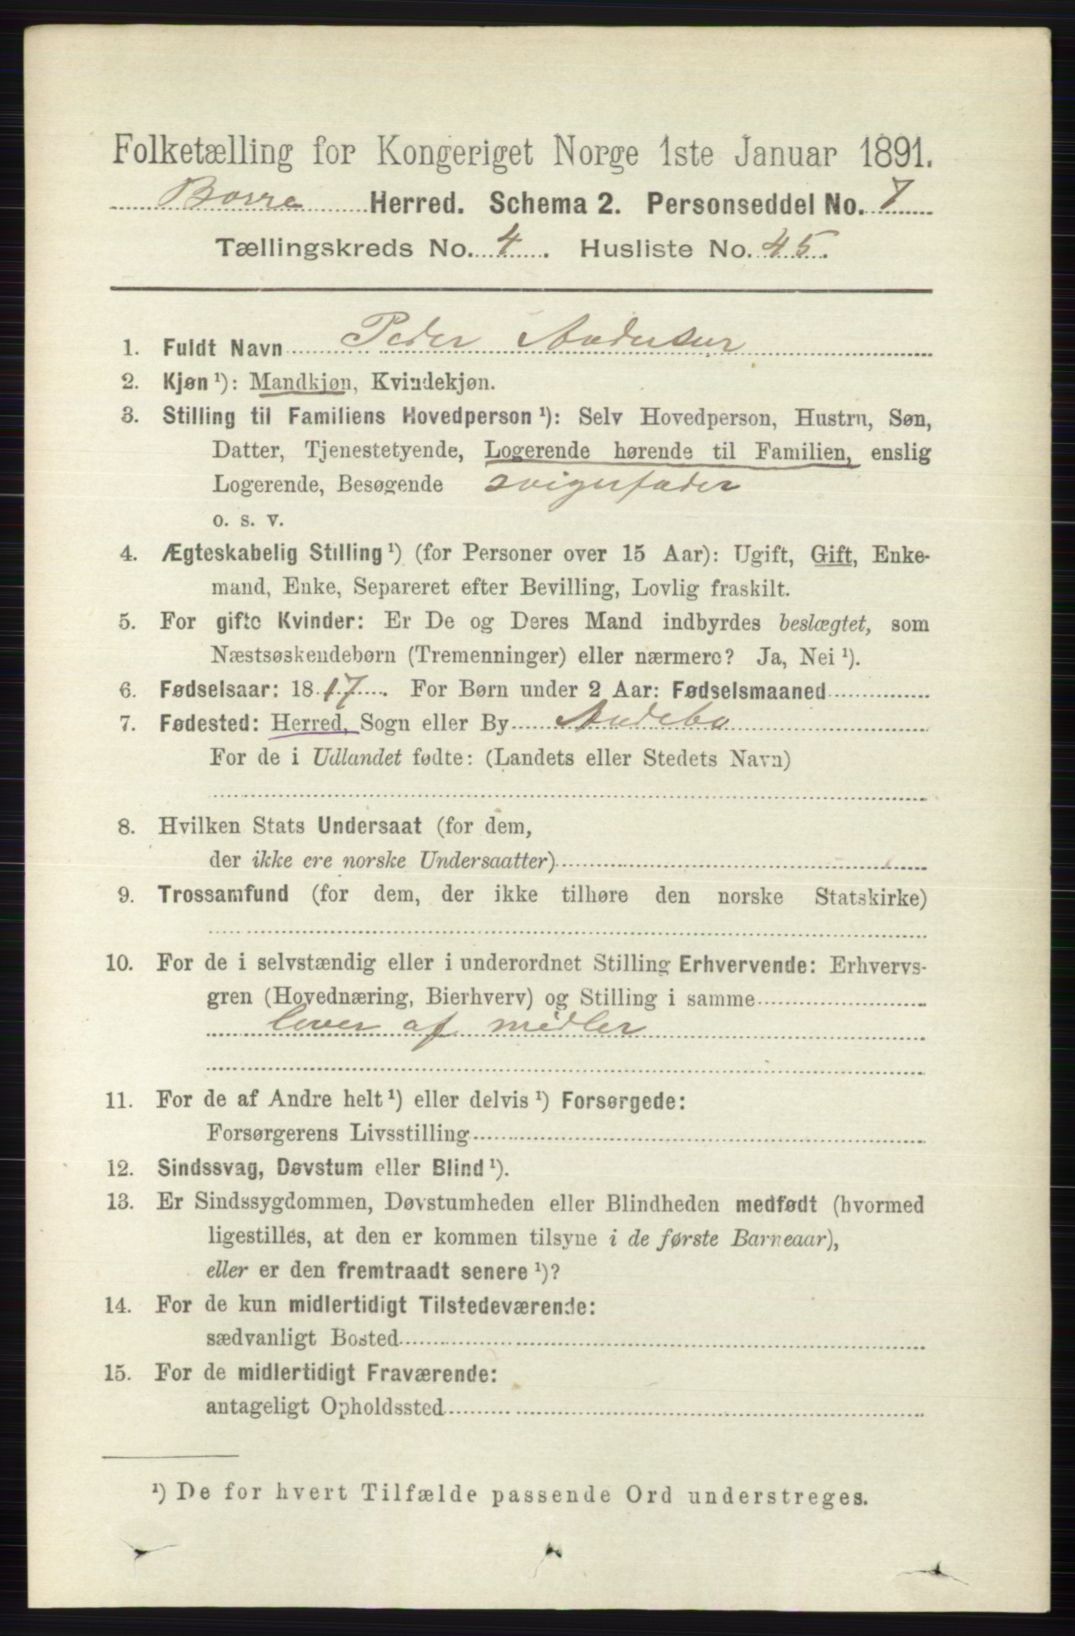 Folketælling for Kongeriget Norge 1ste Januar 1891.
Borre Herred. Schema 2. Personseddel No. 7
Tællingskreds No. 4. Husliste No. 45.
1. Fuldt Navn Peder Andersen
2. Kjøn ¹): Mandkjøn, Kvindekjøn.
3. Stilling til Familiens Hovedperson ¹): Selv Hovedperson, Hustru, Søn,
Datter, Tjenestetyende, Logerende hørende til Familien, enslig
Logerende, Besøgende svigerfader
o. s. v.
4. Ægteskabelig Stilling ¹) (for Personer over 15 Aar): Ugift, Gift, Enke-
mand, Enke, Separeret efter Bevilling, Lovlig fraskilt.
5. For gifte Kvinder: Er De og Deres Mand indbyrdes beslægtet, som
Næstsøskendebørn (Tremenninger) eller nærmere? Ja, Nei ¹).
6. Fødselsaar: 1817. For Børn under 2 Aar: Fødselsmaaned
7. Fødested: Herred, Sogn eller By Andebo
For de i Udlandet fødte: (Landets eller Stedets Navn)
8. Hvilken Stats Undersaat (for dem,
der ikke ere norske Undersaatter)
9. Trossamfund (for dem, der ikke tilhøre den norske Statskirke)
10. For de i selvstændig eller i underordnet Stilling Erhvervende: Erhvervs-
gren (Hovednæring, Bierhverv) og Stilling i samme
lever af midler
11. For de af Andre helt ¹) eller delvis ¹) Forsørgede:
Forsørgerens Livsstilling
12. Sindssvag, Døvstum eller Blind ¹).
13. Er Sindssygdommen, Døvstumheden eller Blindheden medfødt (hvormed
ligestilles, at den er kommen tilsyne i de første Barneaar),
eller er den fremtraadt senere ¹)?
14. For de kun midlertidigt Tilstedeværende:
sædvanligt Bosted
15. For de midlertidigt Fraværende:
antageligt Opholdssted
¹) De for hvert Tilfælde passende Ord understreges.